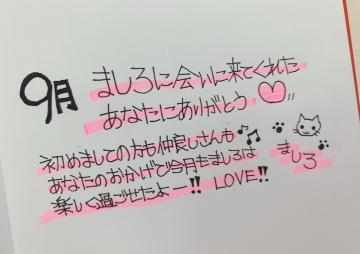 9月
ましろに会いに来てくれた
あなたにありがとう♡!!
初めましての方も仲良しさんも♪♫
あなたのおかげで今月もましろは
楽しく過ごせたよー!! LOVE!!
ましろ